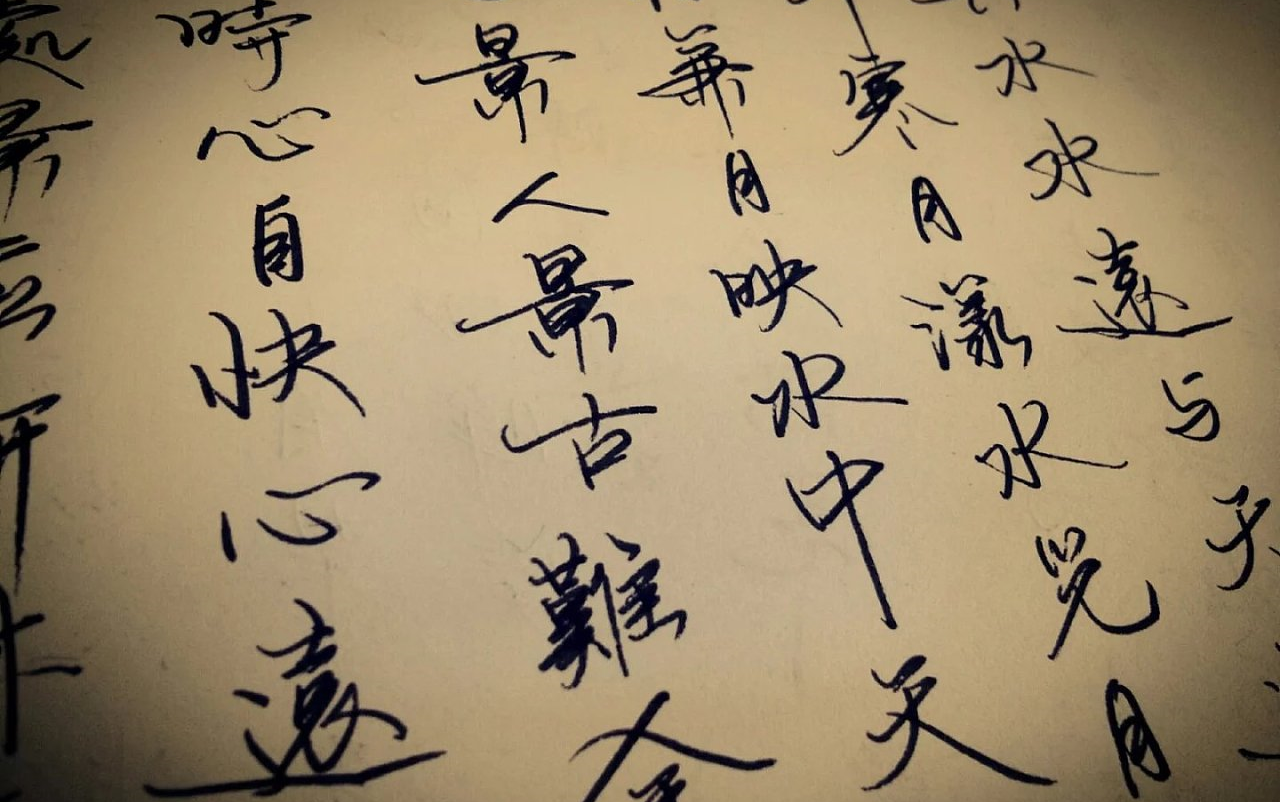 水水遠与天
寒月漾水兒月
華月映水中天
景人景古難全
時心自快心遠
處景